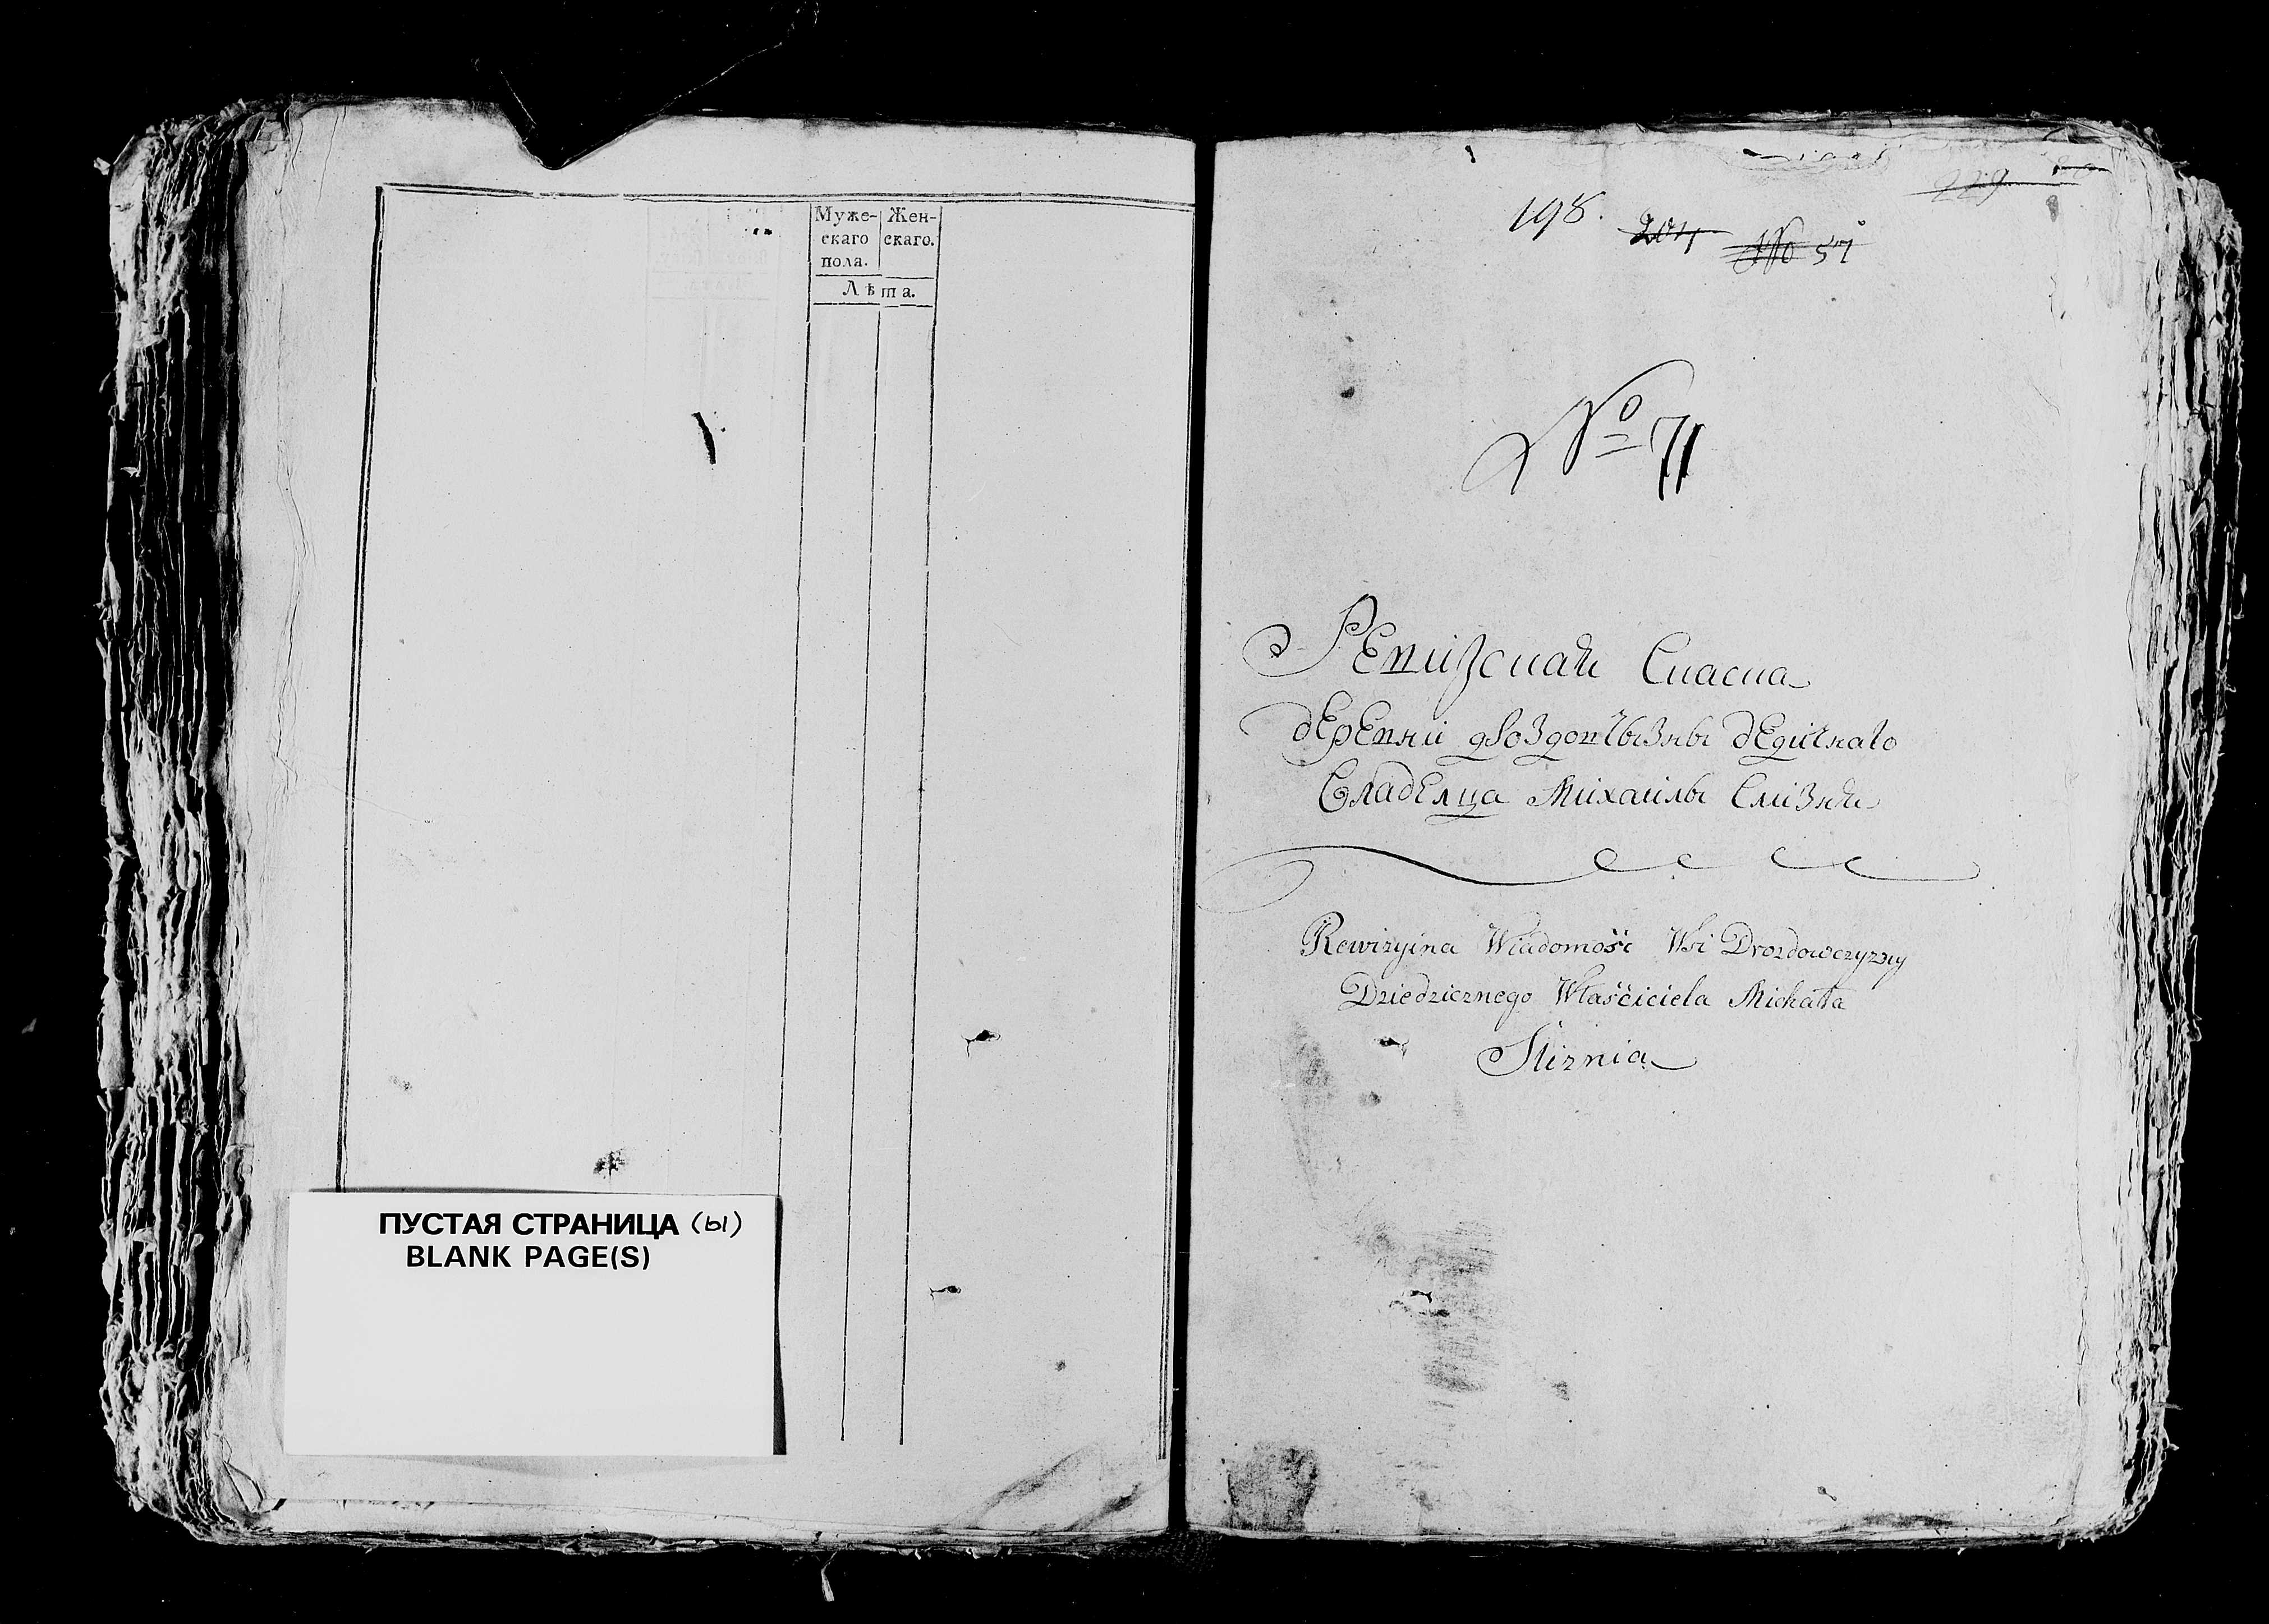 Муже-
скаго
пола.
Жен-
скаго.
Лѣта.
ПУСТАЯ СТРАНИЦА (Ы)
BLANK PAGE(S)
198.
204
№ 57
229
№ 71
Ревизская Скаска
деревни дроздовчызны дедичнаго
Владелца Михаилы Слизня
Rewizyina Wiadomość Wsi Drozdowczyzny
Dziedzicznego Właściciela Michała
Sliznia